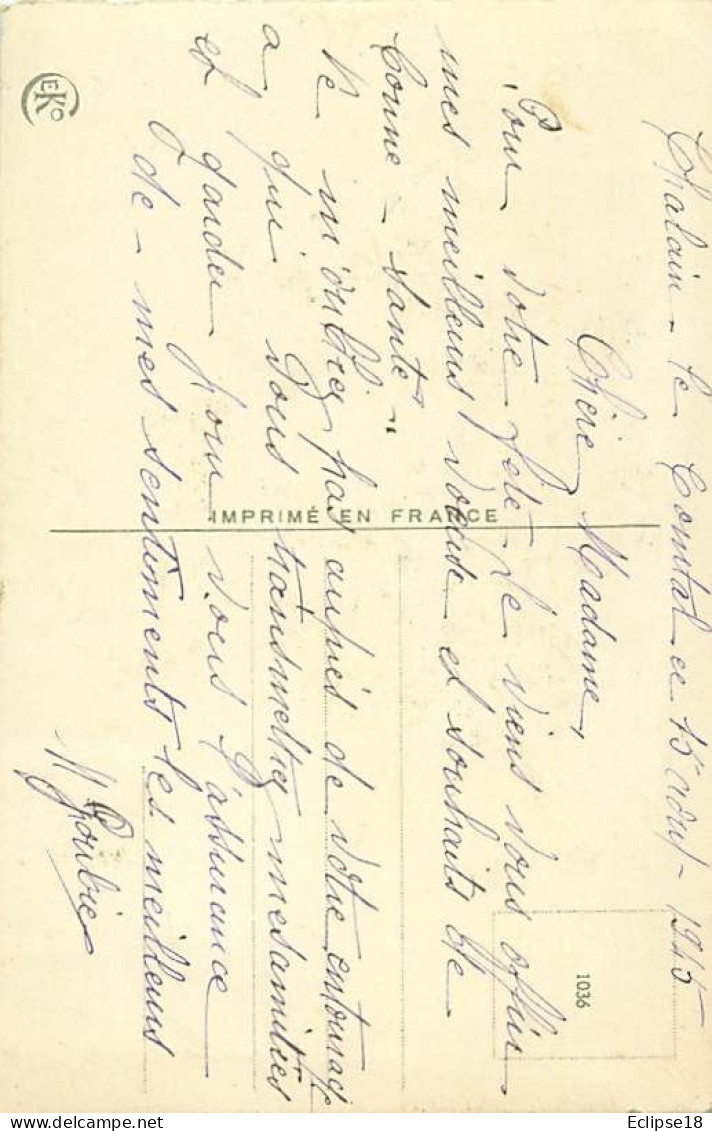 Chalain-le Comtal ce 15 août-1945
Chère Madame,
Pour votre fête je viens vous offrir
mes meilleurs voeux et souhaits de
bonne-santé-
Ne m'oubliez pas auprès de votre entourage
a qui vous transmettrez mes amitiés
et garder pour vous l'assurance
de-mes sentiments les meilleurs
M
EKO
IMPRIMÉ EN FRANCE
1036
Eclipse18